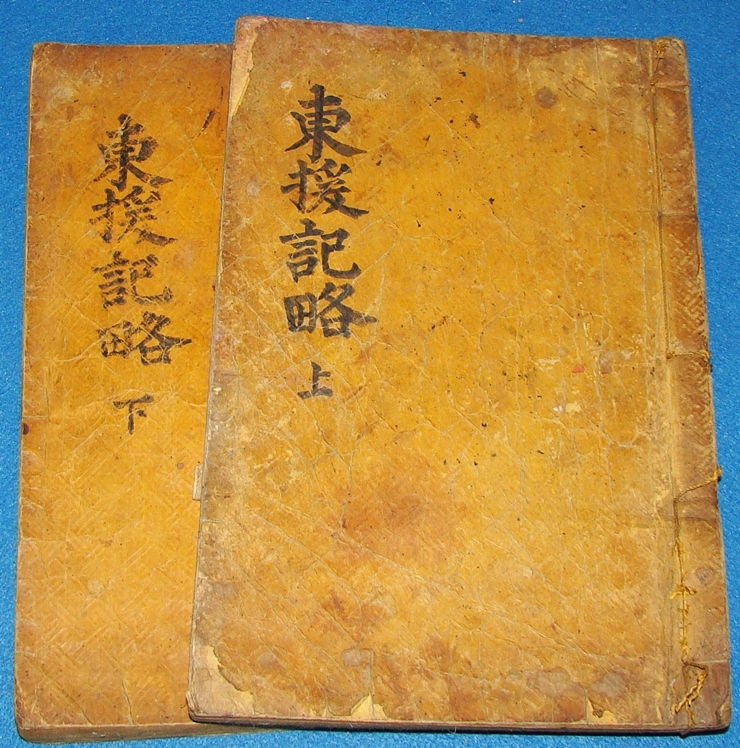 東援記略 上
東援記略 下